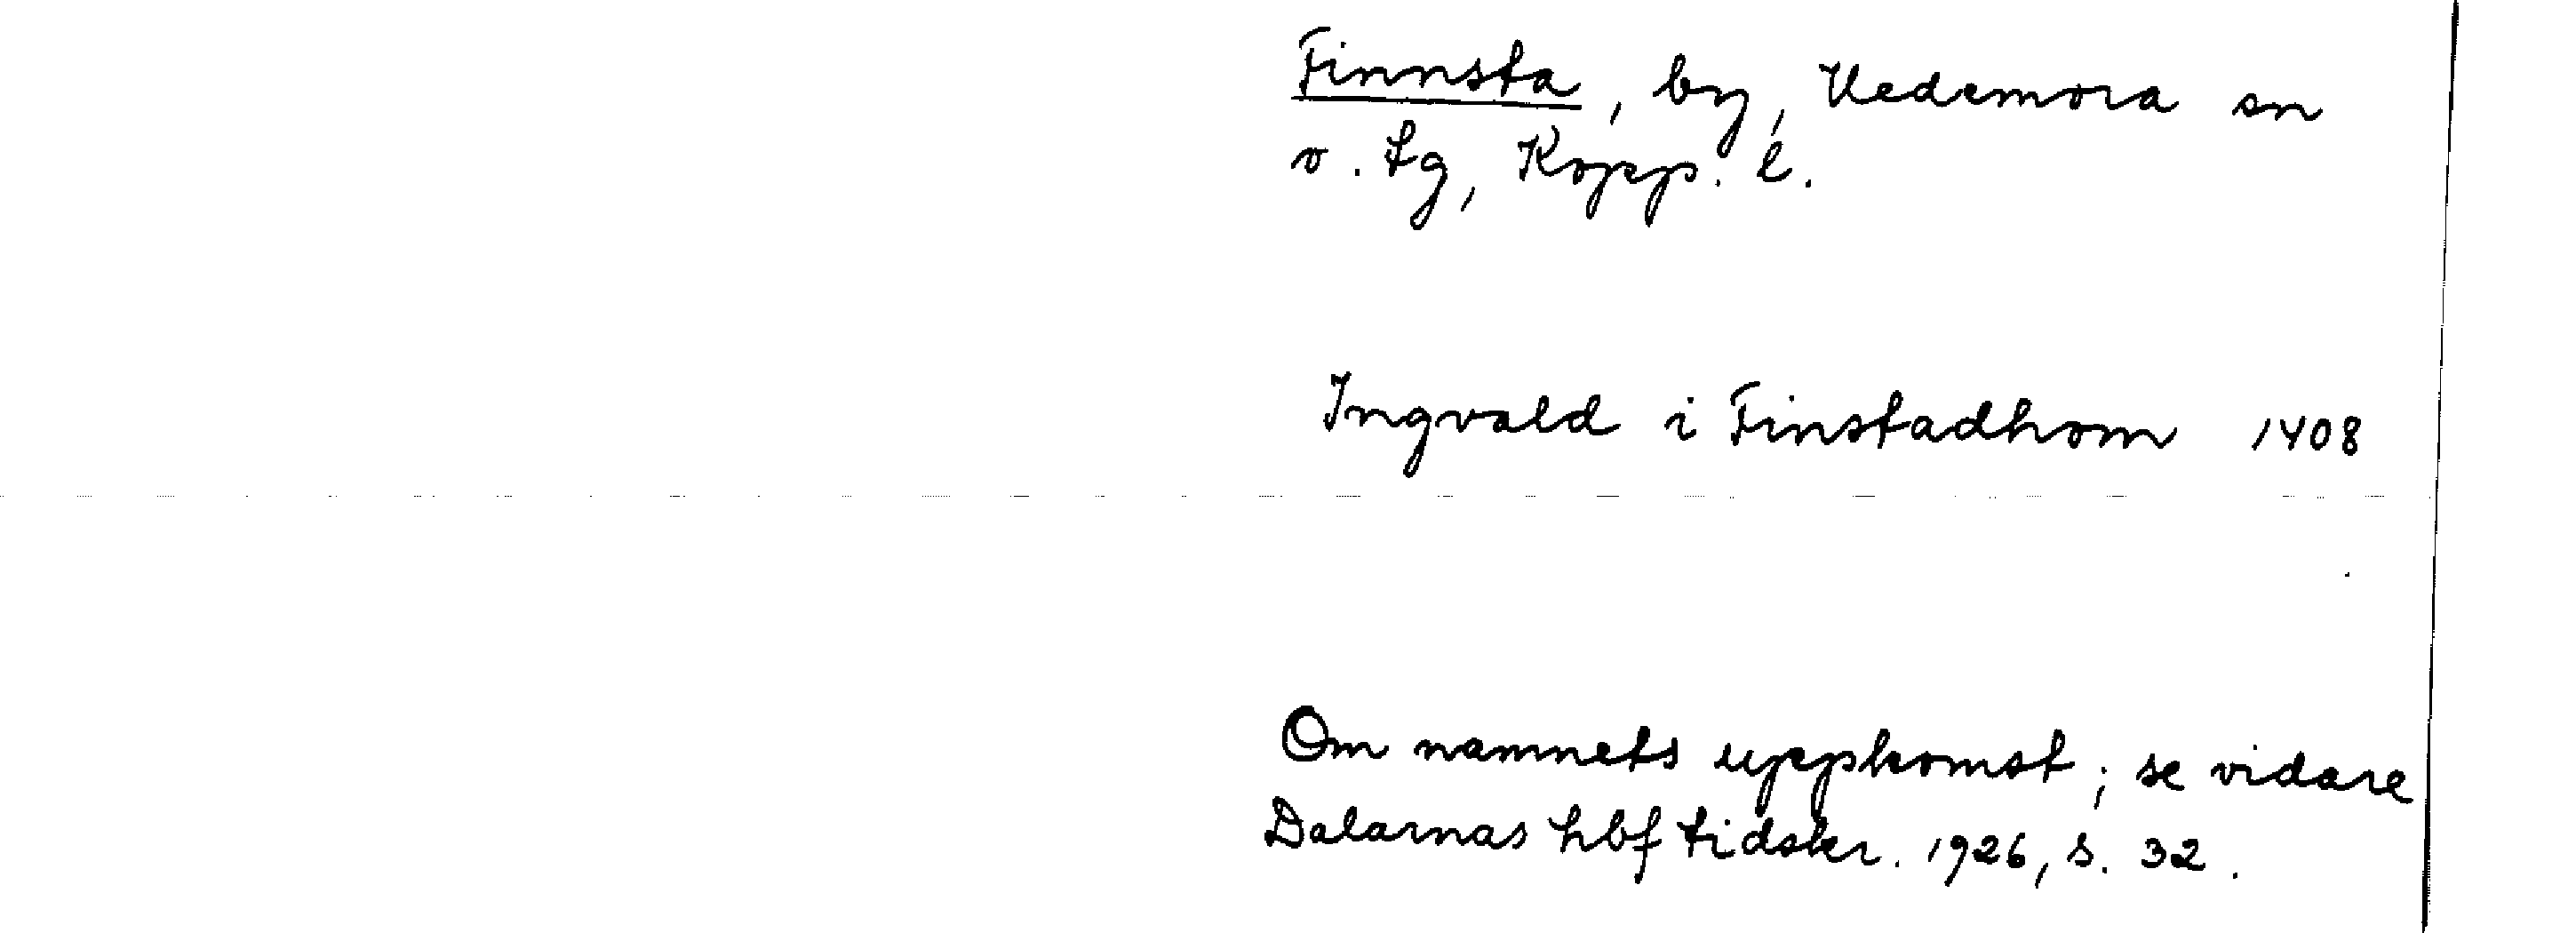 Finnsta, by, Hedemora sn
o. tg, Kopp. l.
Ingvald i Finstadhom 1408
Om namnets uppkomst; se vidare
Dalarnas hbf tidskr. 1926, s. 32.